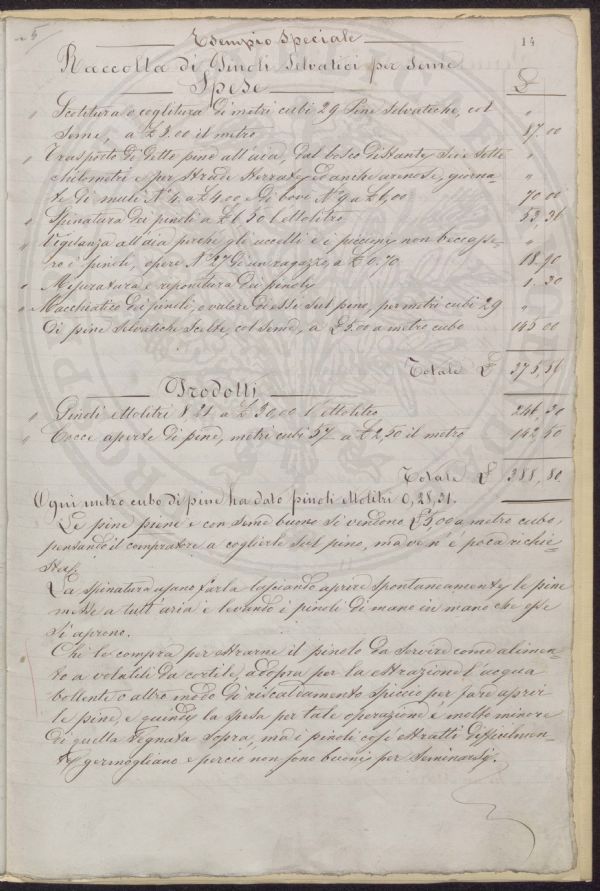 5
14
Esempio Speciale
Raccolta di Pinoli Selvatici per Seme
Spese £
" Scotitura o coglitura di metri cubi 29 Pine Selvatiche, col "
Seme, a £ 3.00 il metro 87.00
" Trasporto di dette pine all'aia, dal bosco distante sei o sette "
chilometri e per strade sterrate, ed anche arenose, giorna- "
te di muli N.º 4 a £ 4,00 e di bovi N.º 9 a £ 6,00 70 00
" Spinatura dei pinoli a £ 6.50 l'ettolitro 53,36
" Vigilanza all'aia perché gli uccelli e i piccioni non beccasse- "
ro i pinoli, opere N.º 27 di un ragazzo, a £ 0.70 18.90
" Misuratura e ripositura dei pinoli 1.30
" Macchiatico dei pinoli, o valore di essi sul pino, per metri cubi 29 "
di pine selvatiche scelte, col seme, a £ 5.00 a metro cubo 145 00
Totale £ 375,56
Prodotti
" Pinoli ettolitri 8 21 a £ 30,00 l'ettolitro 246,30
" Cocce aperte di pine, metri cubi 57 a £ 2,50 il metro 142 50
Totale £ 388,80
Ogni metro cubo di pine ha dato pinoli ettolitri 0,28,31.
Le pine piene e con seme buono si vendono £ 5,00 a metro cubo,
pensando il compratore a coglierle sul pino, ma ve n'è poca richie-
sta.
La spinatura usano farla lasciando aprire spontaneamente le pine
messe a tutt'aria e levando i pinoli di mano in mano che esse
si aprono.
Chi le compra per estrarne il pinolo da servire come alimen-
to a volatili da cortile, adopra per la estrazione l'acqua
bollente o altro modo di riscaldamento spiccio per fare aprir
le pine, e quindi la spesa per tale operazione è molto minore
di quella segnata sopra, ma i pinoli così estratti difficilmen-
te germogliano e perciò non sono buoni per seminarsi.